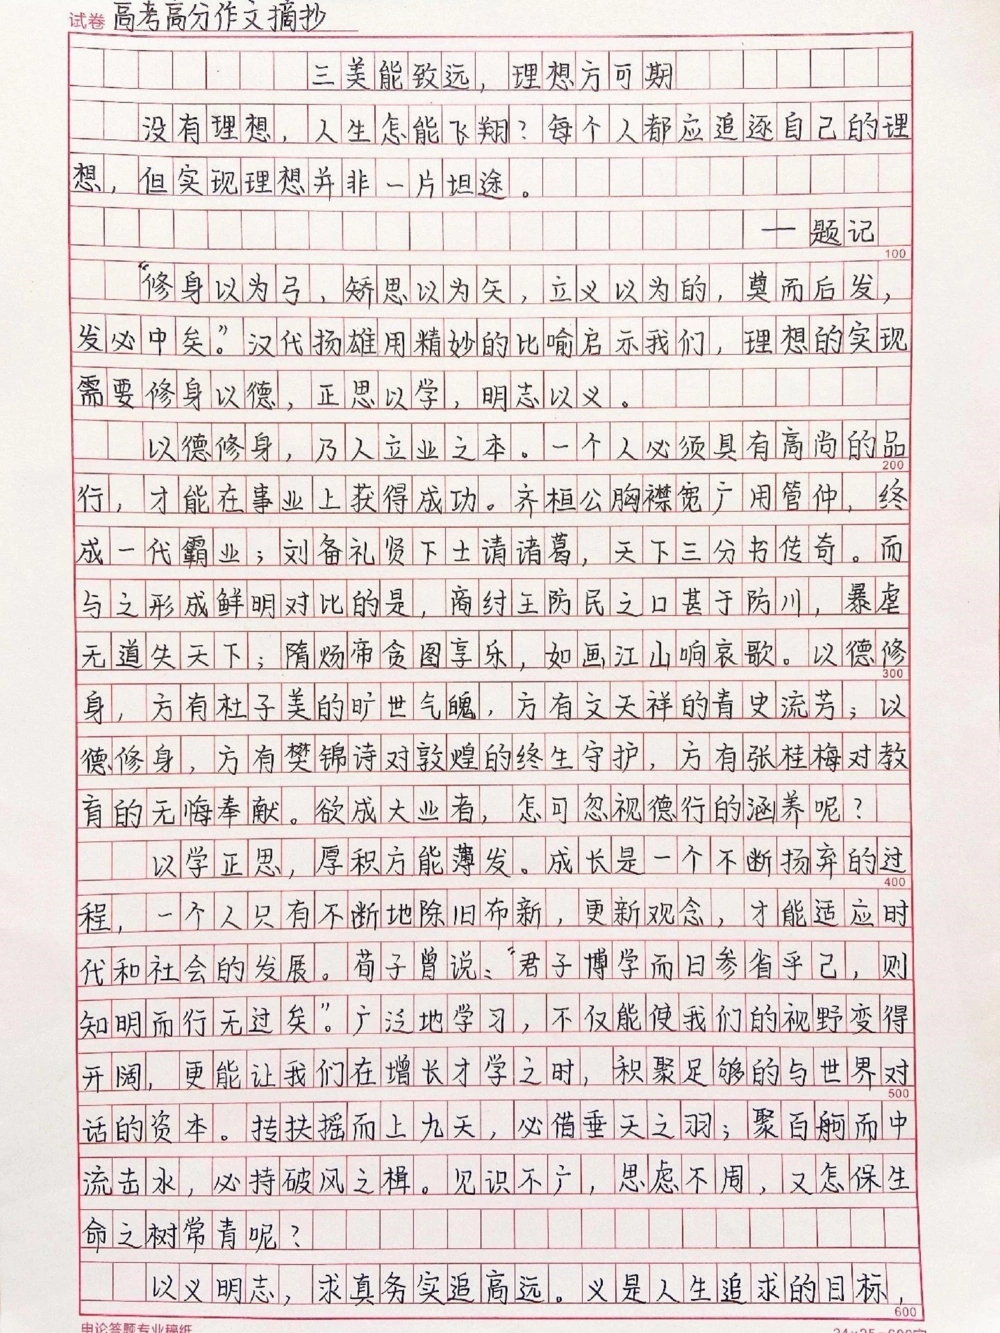 试卷 高考高分作文摘抄
三美能致远，理想方可期
没有理想，人生怎能飞翔？每个人都应追逐自己的理
想，但实现理想并非一片坦途。
—题记
100
“修身以为弓，矫思以为矢，立义以为的，奠而后发，
发必中矣。”汉代扬雄用精妙的比喻启示我们，理想的实现
需要修身以德，正思以学，明志以义。
以德修身，乃人立业之本。一个人必须具有高尚的品
200
行，才能在事业上获得成功。齐桓公胸襟宽广用管仲，终
成一代霸业；刘备礼贤下士请诸葛，天下三分书传奇。而
与之形成鲜明对比的是，商纣王防民之口甚于防川，暴虐
无道失天下；隋炀帝贪图享乐，如画江山响哀歌。以德修
300
身，方有杜子美的旷世气魄，方有文天祥的青史流芳；以
德修身，方有樊锦诗对敦煌的终生守护，方有张桂梅对教
育的无悔奉献。欲成大业者，怎可忽视德行的涵养呢？
以学正思，厚积方能薄发。成长是一个不断扬弃的过
400
程，一个人只有不断地除旧布新，更新观念，才能适应时
代和社会的发展。荀子曾说：“君子博学而日参省乎己，则
知明而行无过矣”。广泛地学习，不仅能使我们的视野变得
开阔，更能让我们在增长才学之时，积聚足够的与世界对
500
话的资本。抟扶摇而上九天，必借垂天之羽；聚百舸而中
流击水，必持破风之楫。见识不广，思虑不周，又怎保生
命之树常青呢？
以义明志，求真务实追高远。义是人生追求的目标，
600
申论答题专业稿纸
24×25=600字